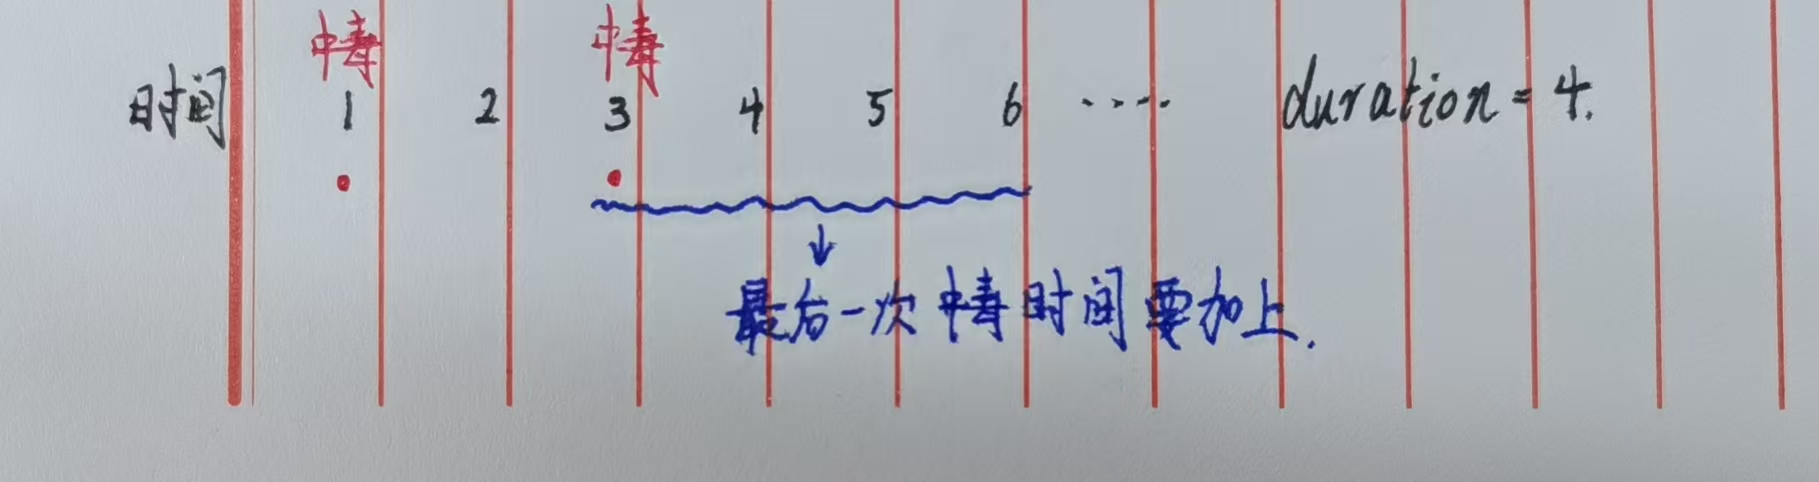 中毒 中毒
时间 1 2 3 4 5 6 .... duration = 4.
最后一次中毒时间要加上.